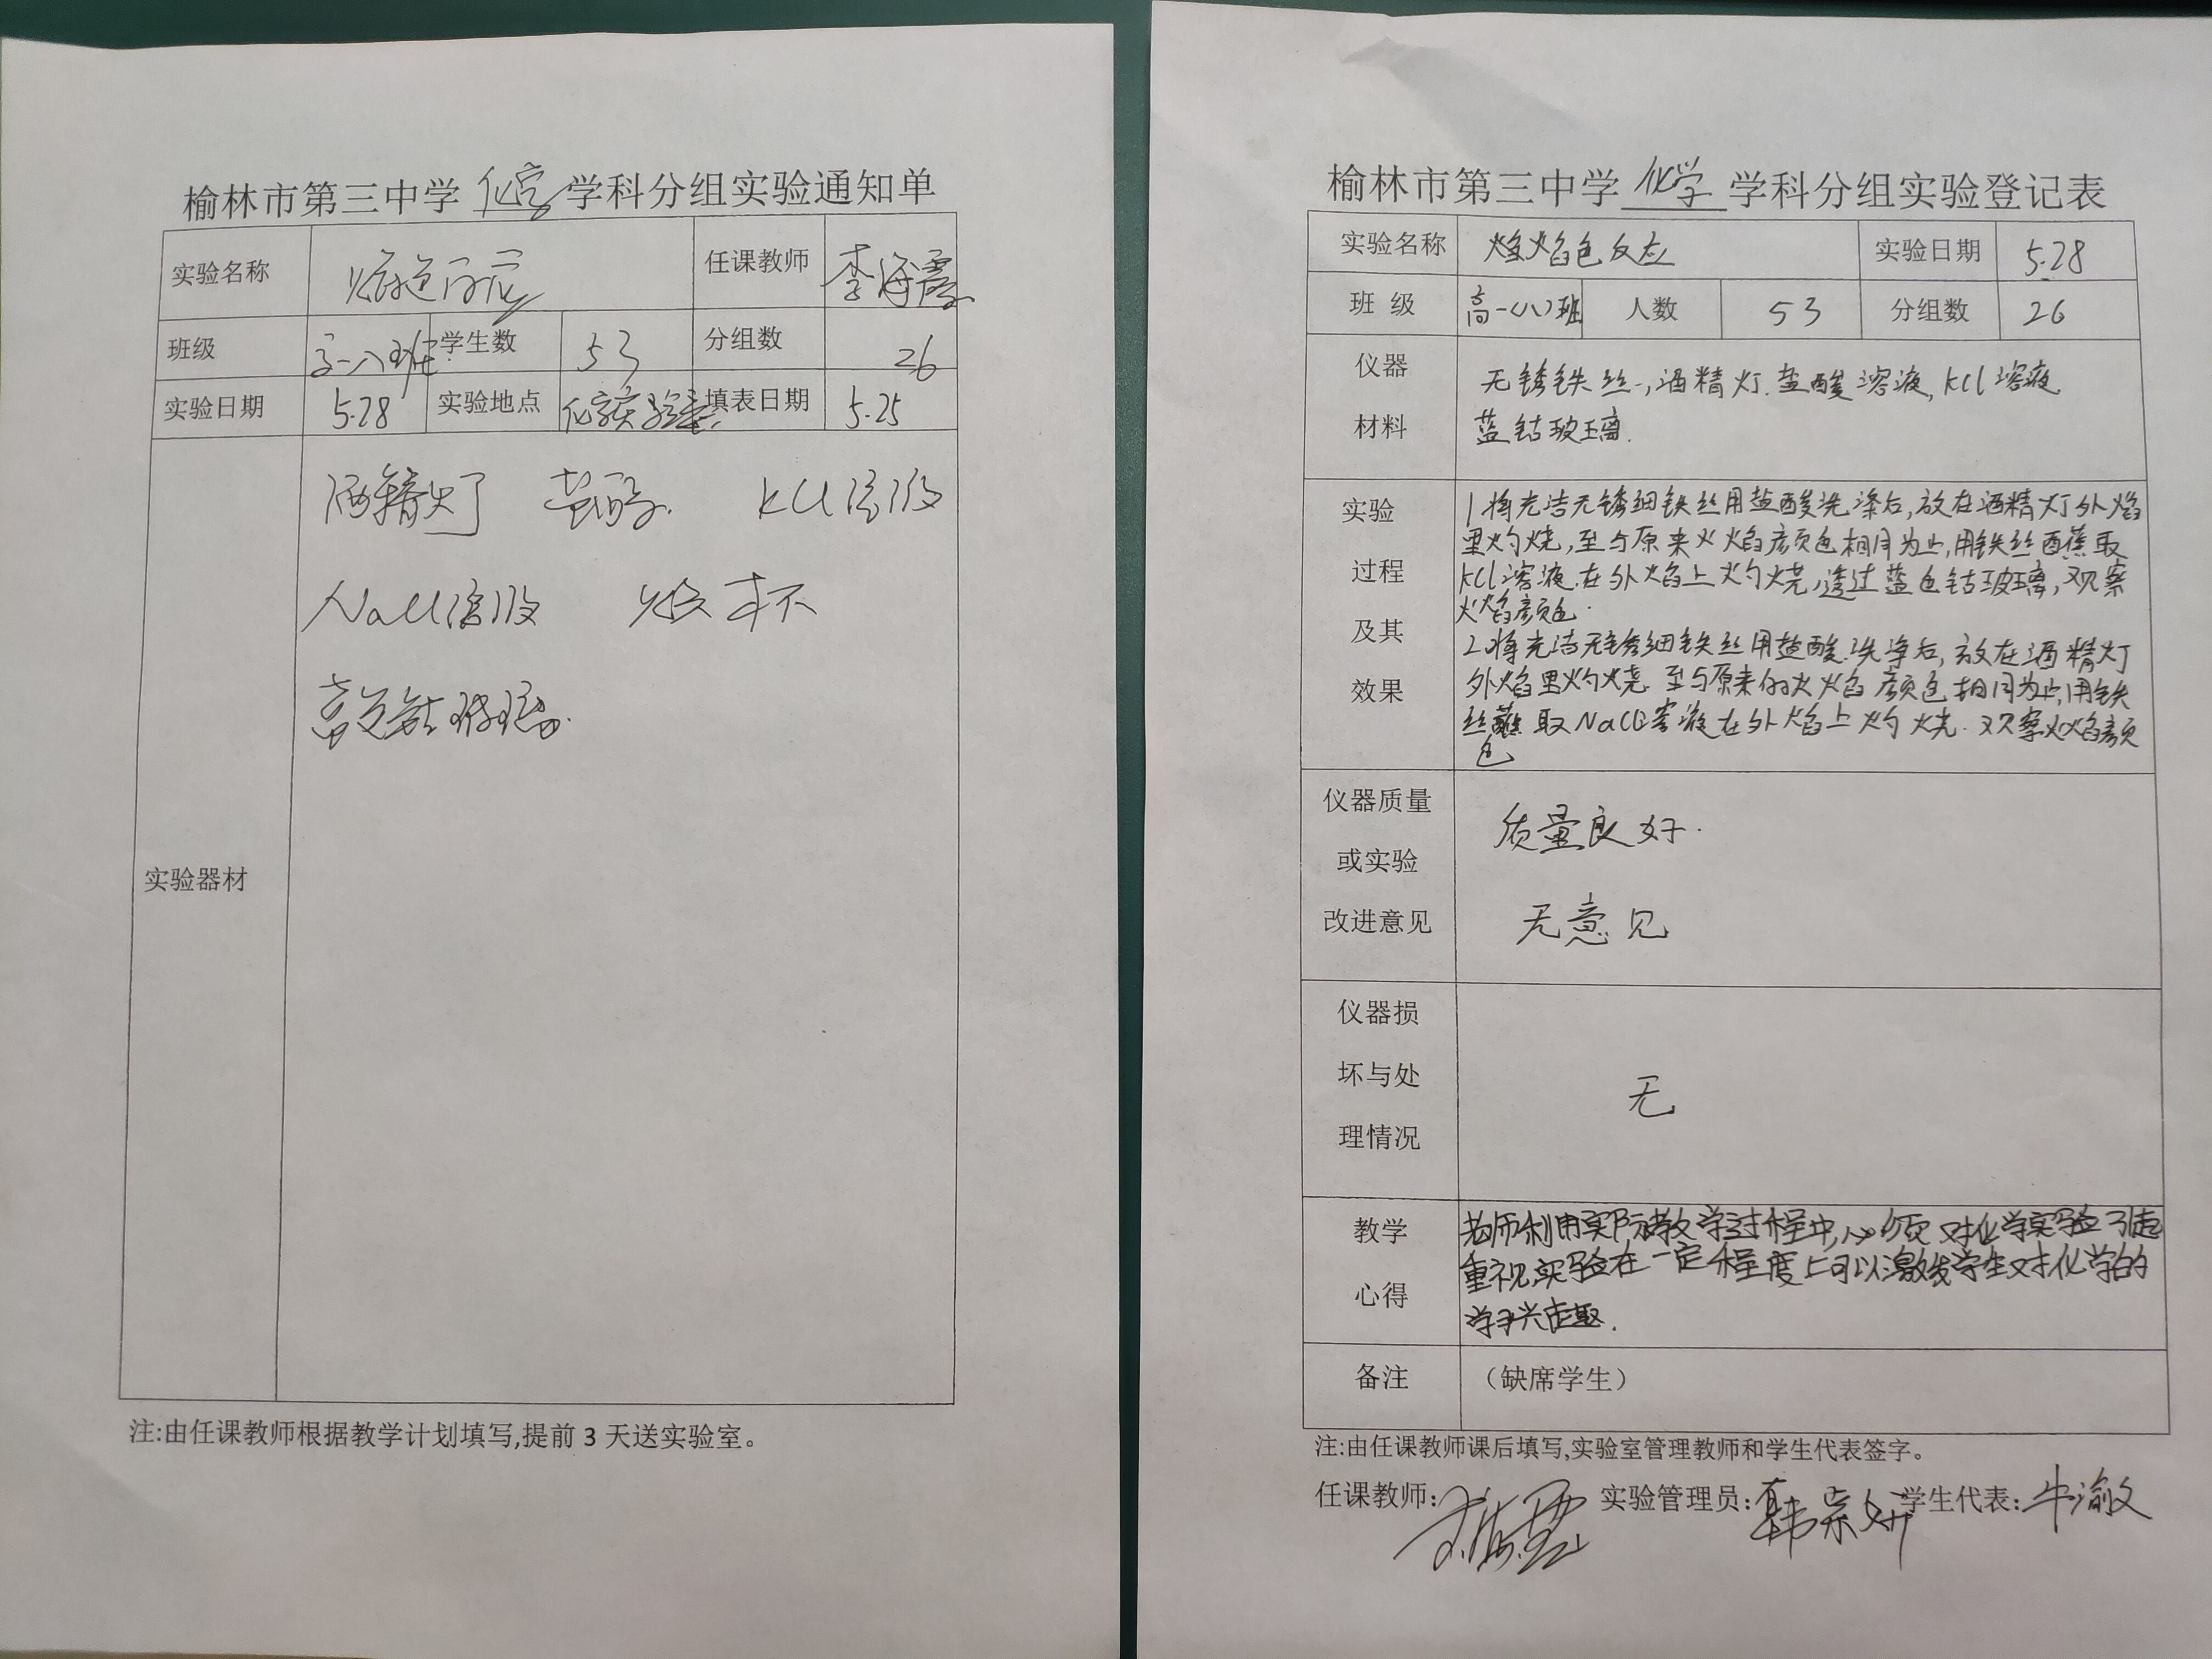 榆林市第三中学 化学 学科分组实验通知单
实验名称 焰色反应 任课教师 李海霞
班级 高一八班 学生数 53 分组数 26
实验日期 5.28 实验地点 化学实验室 填表日期 5.25
实验器材
酒精灯 盐酸 KCl溶液
NaCl溶液 烧杯
蓝色钴玻璃
注:由任课教师根据教学计划填写,提前 3 天送实验室。
榆林市第三中学 化学 学科分组实验登记表
实验名称 焰色反应 实验日期 5.28
班 级 高一(八)班 人数 53 分组数 26
仪器
材料
无锈铁丝,酒精灯.盐酸溶液,KCl溶液
蓝钴玻璃.
实验
过程
及其
效果
1.将光洁无锈细铁丝用盐酸洗涤后,放在酒精灯外焰
里灼烧,至与原来火焰颜色相同为止,用铁丝蘸取
KCl溶液.在外焰上灼烧,透过蓝色钴玻璃,观察
火焰颜色.
2.将光洁无锈细铁丝用盐酸洗净后,放在酒精灯
外焰里灼烧.至与原来的火焰颜色相同为止,用铁
丝蘸取NaCl溶液在外焰上灼烧.观察火焰颜
色
仪器质量
或实验
改进意见
质量良好.
无意见
仪器损
坏与处
理情况
无
教学
心得
老师利用实际教学过程中,必须对化学实验引起
重视,实验在一定程度上可以激发学生对化学的
学习兴趣.
备注 (缺席学生)
注:由任课教师课后填写,实验室管理教师和学生代表签字。
任课教师: 李海霞 实验管理员: 韩崇妍 学生代表: 牛渝文